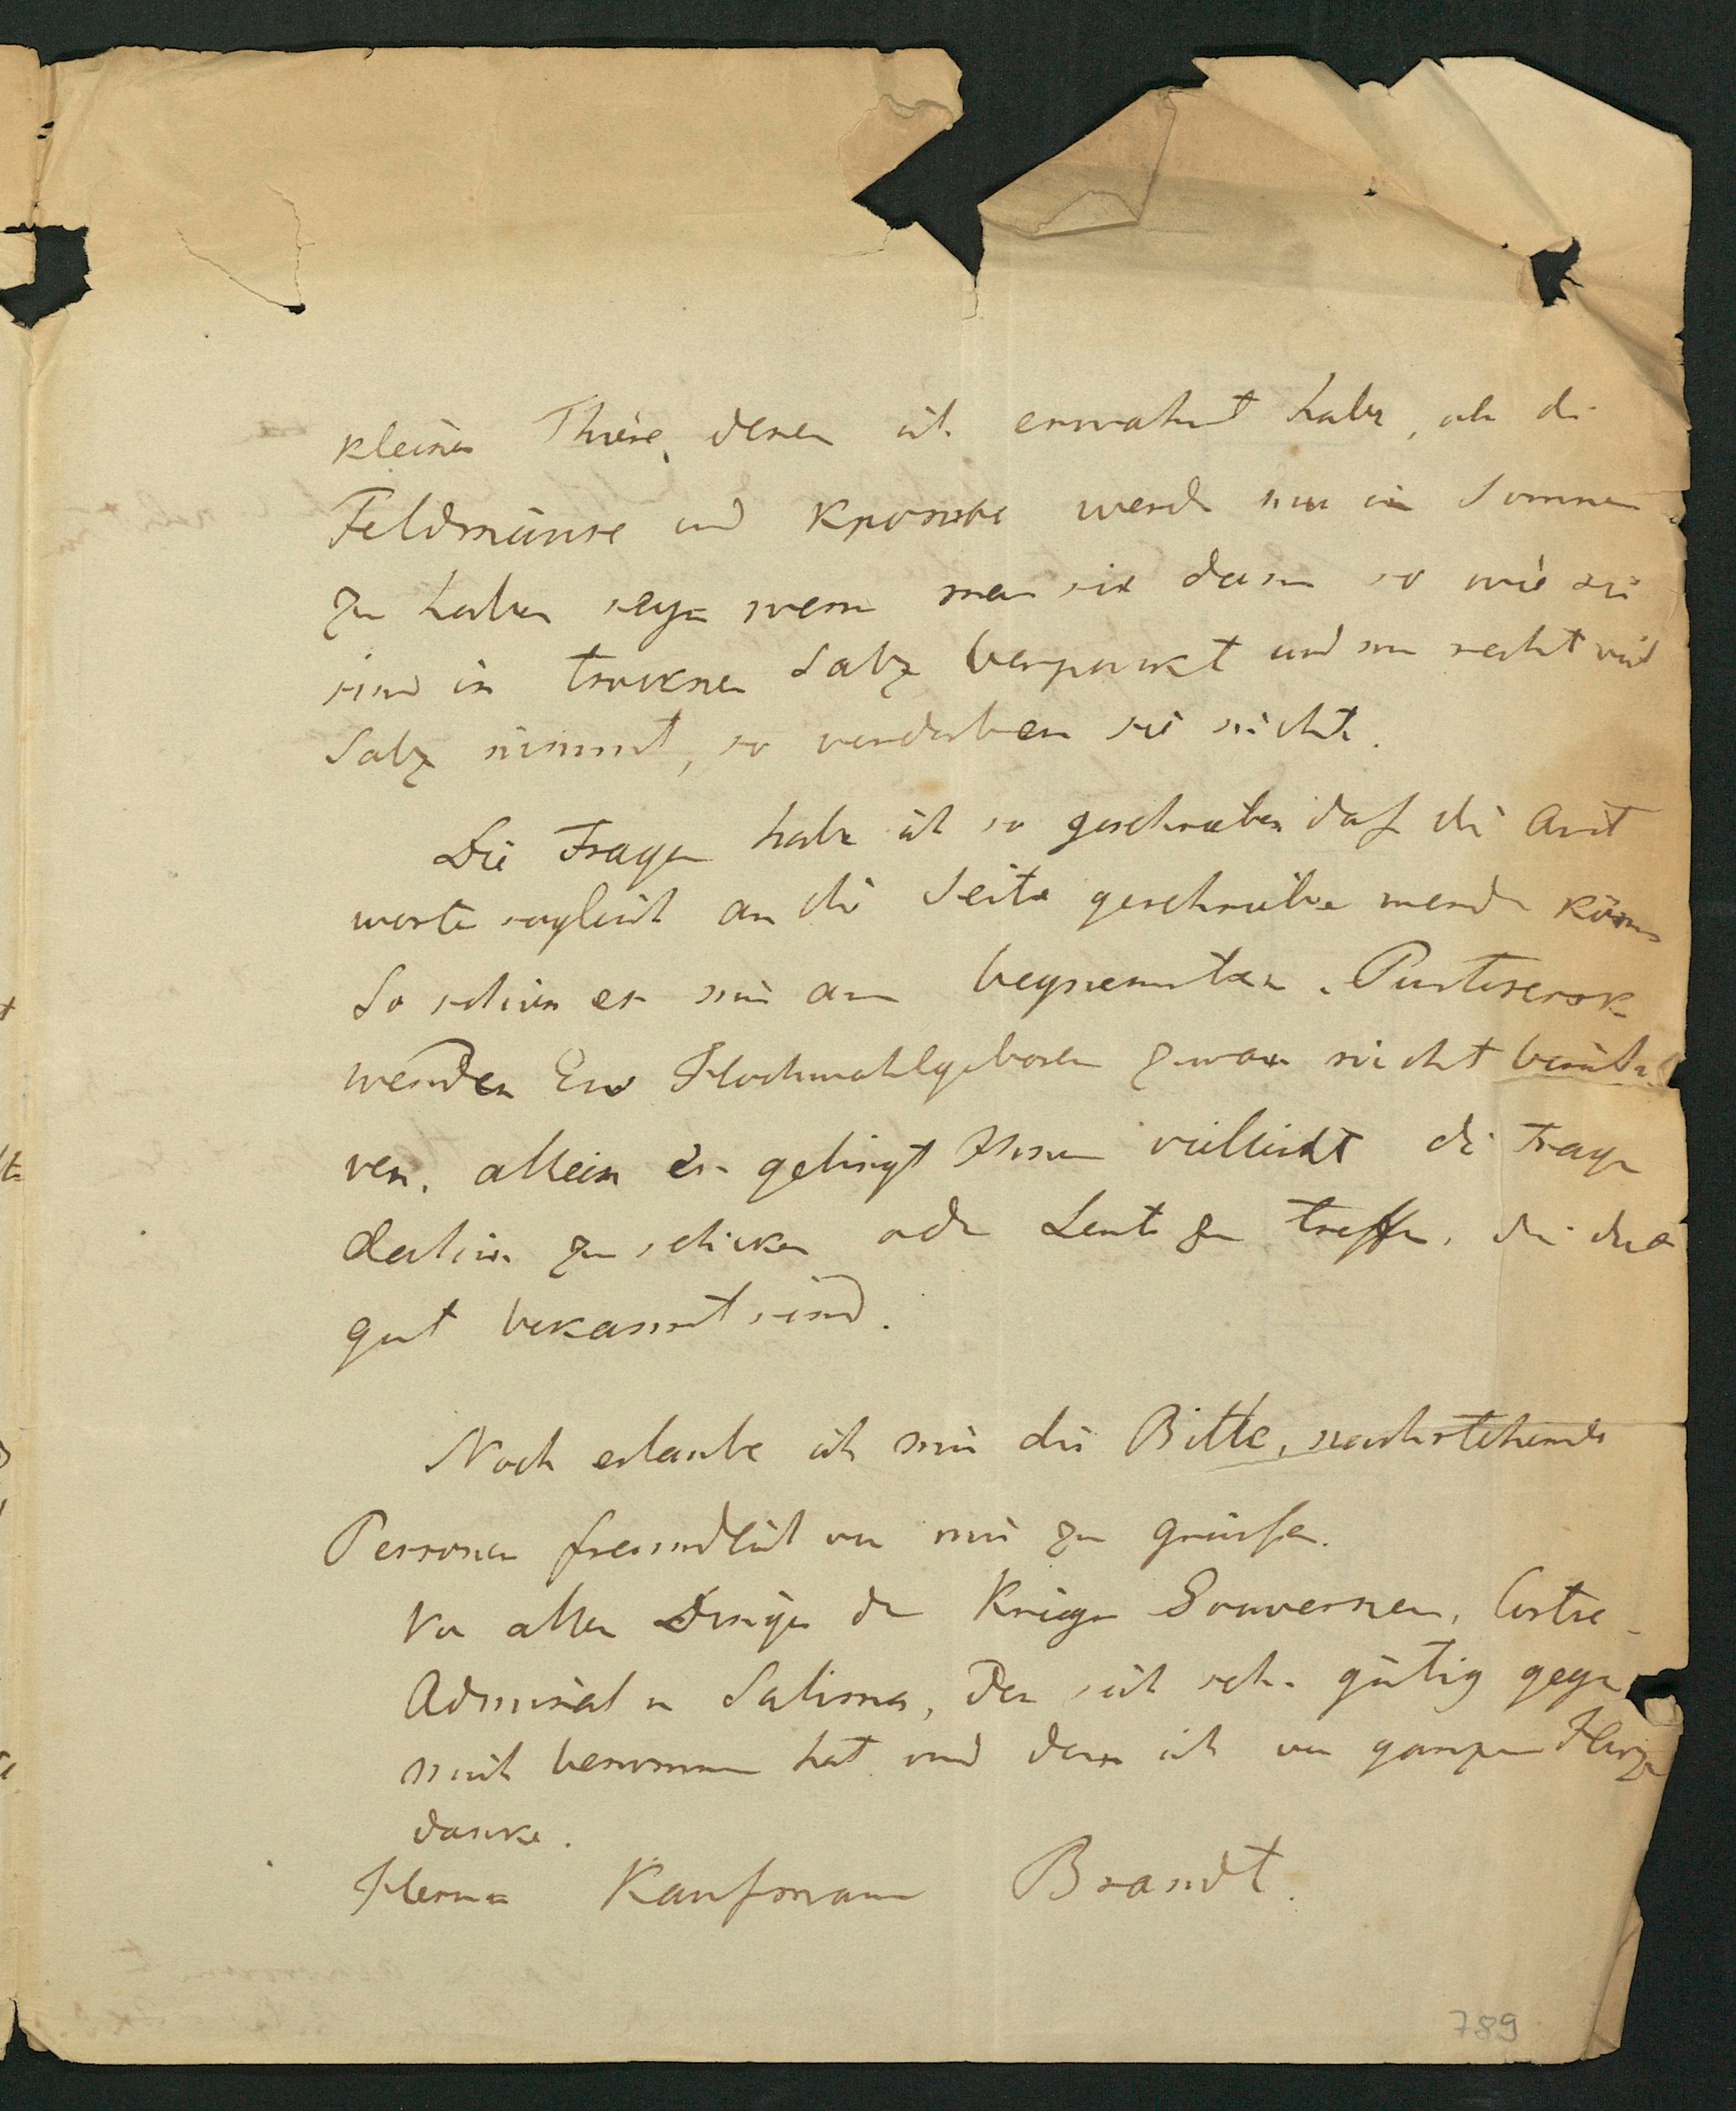 kleinen Thiere, deren ich erwähnt habe, als die
Feldmäuse und Кротовъ werden nur im Sommer
zu haben seyn wenn man sie dann so wie sie
sind in trocknen Salz verpackt und nur recht viel
Salz nimmt, so verderben sie nicht.
Die Fragen habe ich so geschrieben daß die Ant
worten sogleich an die Seite geschrieben werden können
So schien es mir am bequemsten. Pustosersk
werden Ew Hochwohlgeboren zwar nicht
ren. allein es gelingt Ihnen vielleicht die Fragen
dahin zu schicken oder Leute zu treffen, die dort
gut bekannt sind.
Noch erlaube ich mir die Bitte, nachstehende
Personen freundlich von mir zu grüßen.
Vor allen Dingen den Kriegs Gouverneur, Contre-
Admiral v Sulima, der sich sehr gütig gegen
mich benommen hat und dem ich von ganzem Herzen
danke.
Herrn Kaufmann Brandt.
789